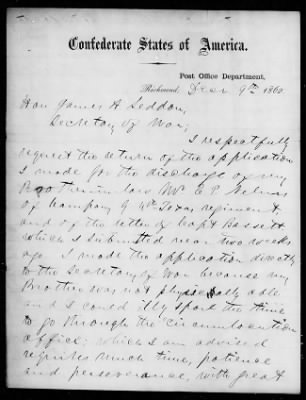 Confederate States of America.
Post Office Department,
Richmond, Decr 9th 1860
Hon James A Seddon,
Secretary of War;
I respectfully
request the return of the application
I made for the discharge of my
Bro Mr E. P.
of Company G 4th Texas regiment,
and of the letter of Capt Bassett
which I submitted near two weeks
ago I made the application directly
to the Secretary of War because my
Brother was not physically able
and I could illy spare the time
to go through the "circumlocution
office" which I am advised
requires much time, patience
and perseverance, with great